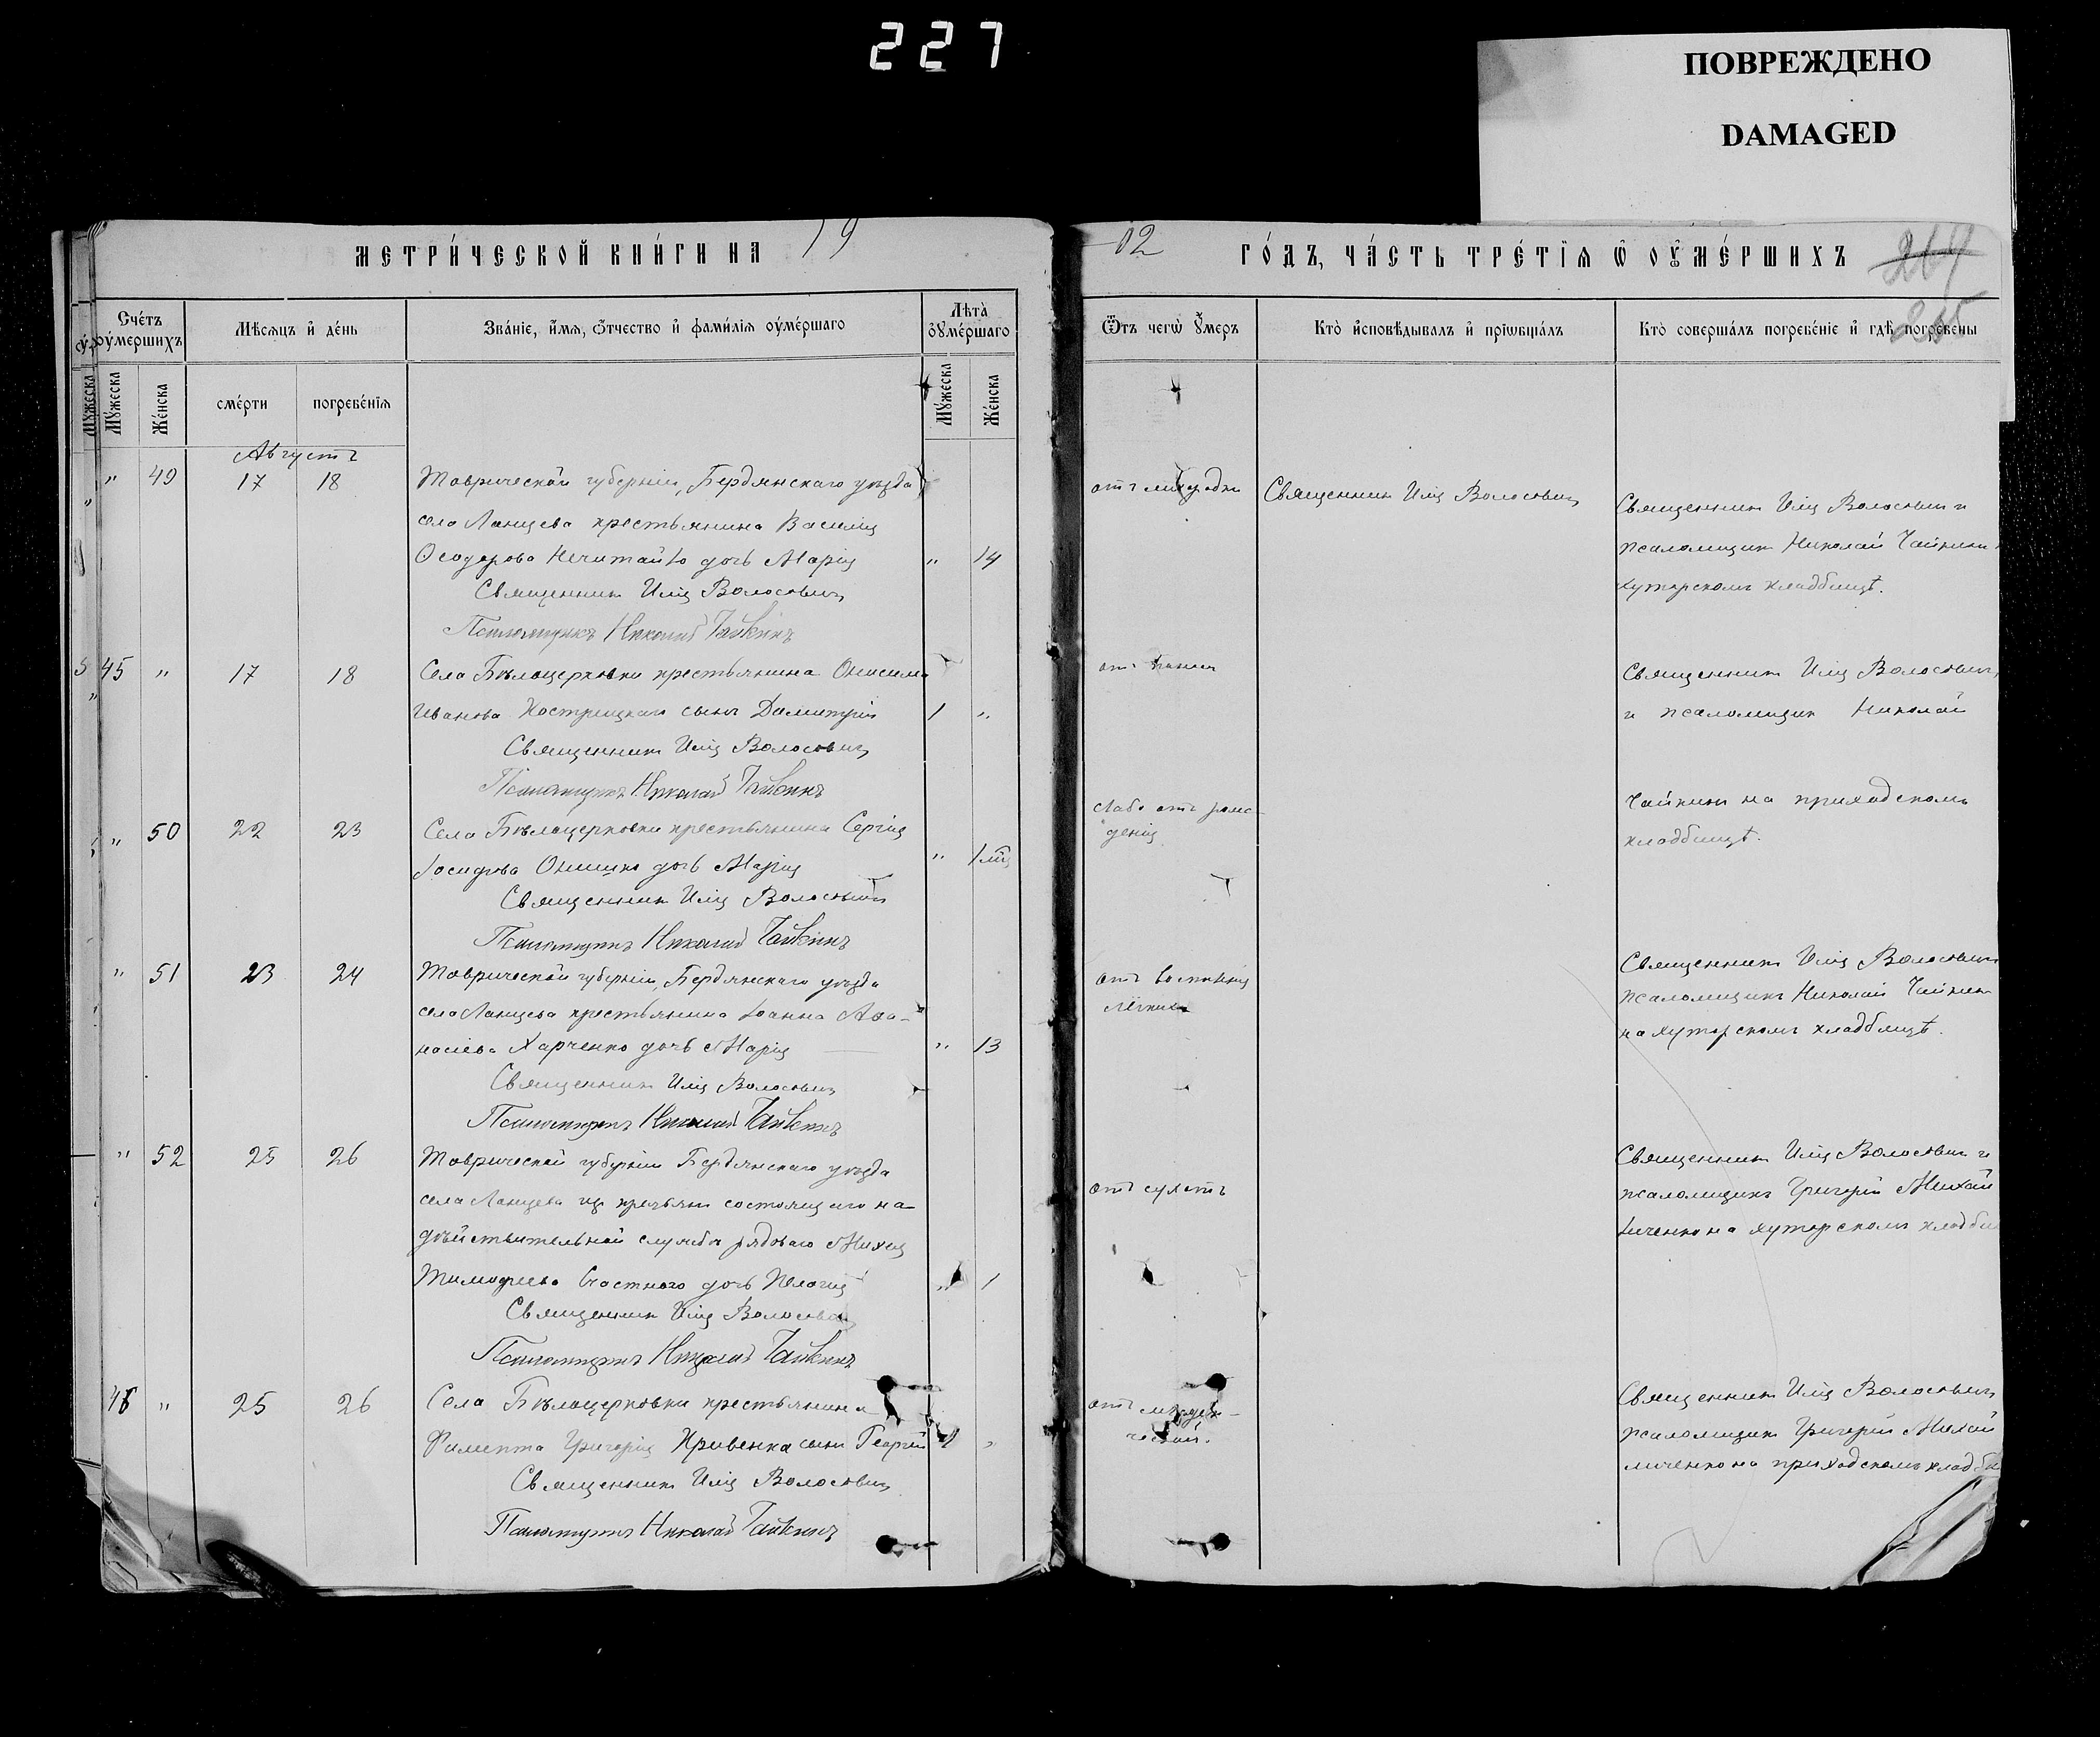 227
ПОВРЕЖДЕНО
DAMAGED
МЕТРИ́ЧЕСКОЙ КНИ́ГИ НА 19
02 ГО́ДЪ, ЧА́СТЬ ТРЕ́ТІѦ Ѡ҆ ОУ҆МЕ́РШИХЪ
264
265
Сче́тъ оуме́ршихъ
Мѣсѧцъ и҆ де́нь
Зва́ніе, и҆́мѧ, ѻ҆́тчество и҆ фами́лїѧ оу҆ме́ршаго
Лѣта̀ оу҆ме́ршаго
Ѿ чегѡ̀ оу҆́меръ
Кто̀ и҆сповѣ́дывалъ и҆ прїѡбща́лъ
Кто̀ соверша́лъ погребе́нїе и҆ гдѣ̀ погребе́ны
Мꙋ́жеска
Мꙋ́жеска
Же́нска
сме́рти
погребе́нїѧ
Мꙋ́жеска
Же́нска
Августъ
" 49 17 18 Таврической губерніи, Бердянскаго уѣзда
села Ланцева крестьянина Василія
Ѳеодорова Нечитайло дочь Марія " 14
Священникъ Илія Волосевич
Псаломщикъ Николай Чайкинъ
Священникъ Илія Волосевич
Священникъ Илія Волосевич и
псаломщик Николай Чайкин
хуторскомъ кладбищѣ.
45 " 17 18 Села Бѣлоцерковки крестьянина Онисима
Иванова сынъ Димитрій 1 "
Священникъ Илія Волосевич
Псаломщикъ Николай Чайкинъ
Священникъ Илія Волосевич
и псаломщик Николай
Чайкин на приходскомъ
кладбищѣ.
" 50 22 23 Села Бѣлоцерковки крестьянина Сергія
Онишко дочь Марія " 1 мц
Священникъ Илія Волосевич
Псаломщикъ Николай Чайкинъ
слабо отъ рож-
денія
" 51 23 24 Таврической губерніи, Бердянскаго уѣзда
села Ланцева крестьянина Іоанна Аѳа-
насіева Харченко дочь Марія " 13
Священникъ Илія Волосевич
Псаломщикъ Николай Чайкинъ
отъ воспаленія
легкихъ
Священникъ Илія Волосевич
псаломщикъ Николай Чайкин
на хуторскомъ кладбищѣ.
" 52 25 26 Таврической губерніи Бердянскаго уѣзда
села Ланцева изъ крестьян состоящаго на
дѣйствительной службѣ рядоваго
Тимофеева Счастного дочь Пелагія " 1
Священникъ Илія Волосевич
Псаломщикъ Николай Чайкинъ
отъ сухотъ
Священникъ Илія Волосевич и
псаломщикъ Григорій Михай
личенко на хуторскомъ кладби
46 " 25 26 Села Бѣлоцерковки крестьянина
Григорія Кривенка сынъ Георгій "
Священникъ Илія Волосевич
Псаломщикъ Николай Чайкинъ
Священникъ Илія Волосевич
псаломщик Григорій Михай
личенко на приходскомъ кладби